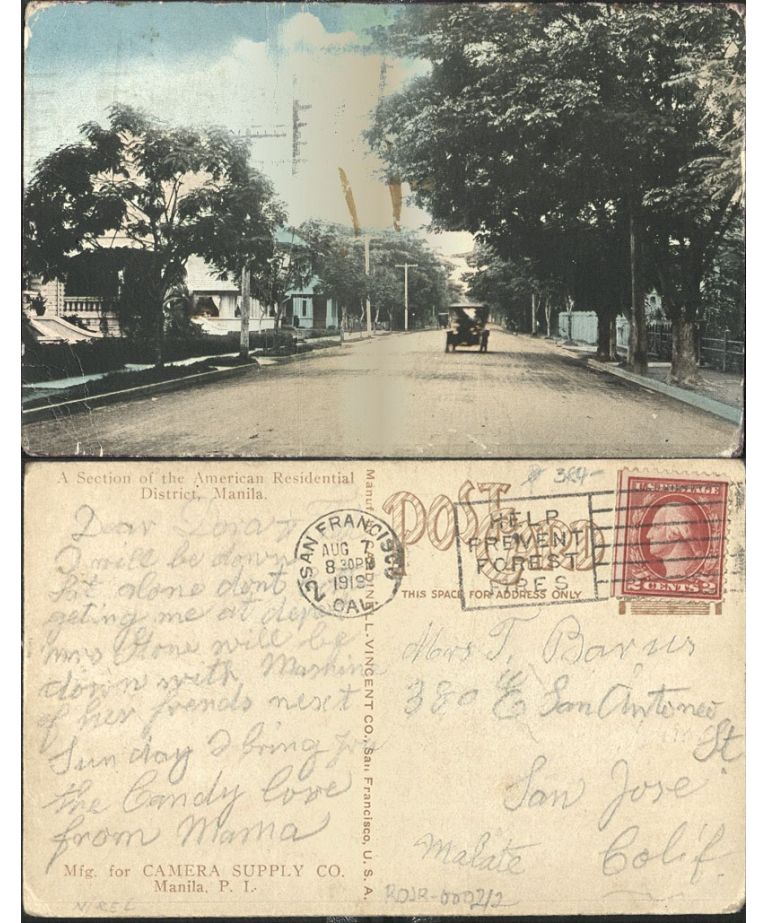 A Section of the American Residential
District, Manila.
Dear Dora
I will be down
Sat alone dont
geting me at depo
Mrs Stone will be
down with Mashine
of her frends next
Sunday I bring you
the Candy love
from Mama
Mfg. for CAMERA SUPPLY CO.
Manila, P. I.
CARDINELL-VINCENT CO., San Francisco, U. S. A.
POST CARD
SAN FRANCISCO
AUG 7
8 30PM
1919
2
CAL.
HELP
PREVENT
FOREST
FIRES
U.S. POSTAGE
2 CENTS 2
THIS SPACE FOR ADDRESS ONLY
Mrs T. Barus
380 E San Antoneo
St
San Jose
Malate Calif.